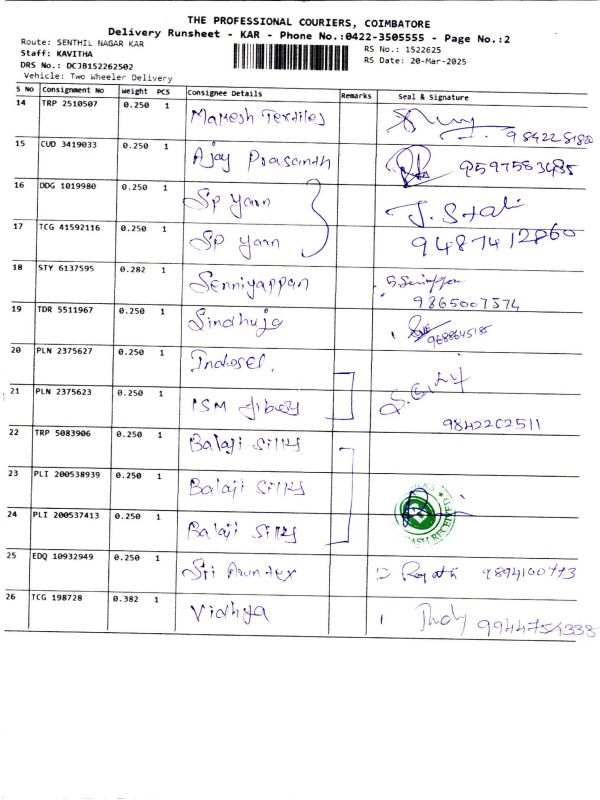 THE PROFESSIONAL COURIERS, COIMBATORE
Delivery Runsheet - KAR - Phone No.:0422-3505555 - Page No.:2
Route: SENTHIL NAGAR KAR
Staff: KAVITHA
RS No.: 1522625
DRS No.: DCJB152262502
RS Date: 20-Mar-2025
Vehicle: Two Wheeler Delivery
S No Consignment No Weight PCS Consignee Details Remarks Seal & Signature
14 TRP 2510507 0.250 1 Mahesh Textiles
15 CUD 3419033 0.250 1 Ajay Prasanth
16 DDG 1019980 0.250 1 Sp yarn
17 TCG 41592116 0.250 1 Sp yarn 9487412860
18 STY 6137595 0.282 1 Senniyappan
9865007574
19 TDR 5511967 0.250 1 Sindhuja
20 PLN 2375627 0.250 1 Indosel.
21 PLN 2375623 0.250 1 ISM
9842202511
22 TRP 5083906 0.250 1 Balaji Silks
23 PLI 200538939 0.250 1 Balaji Silks
24 PLI 200537413 0.250 1 Balaji Silks
25 EDQ 10932949 0.250 1 Sri Aruntex
26 TCG 198728 0.382 1 Vidhya